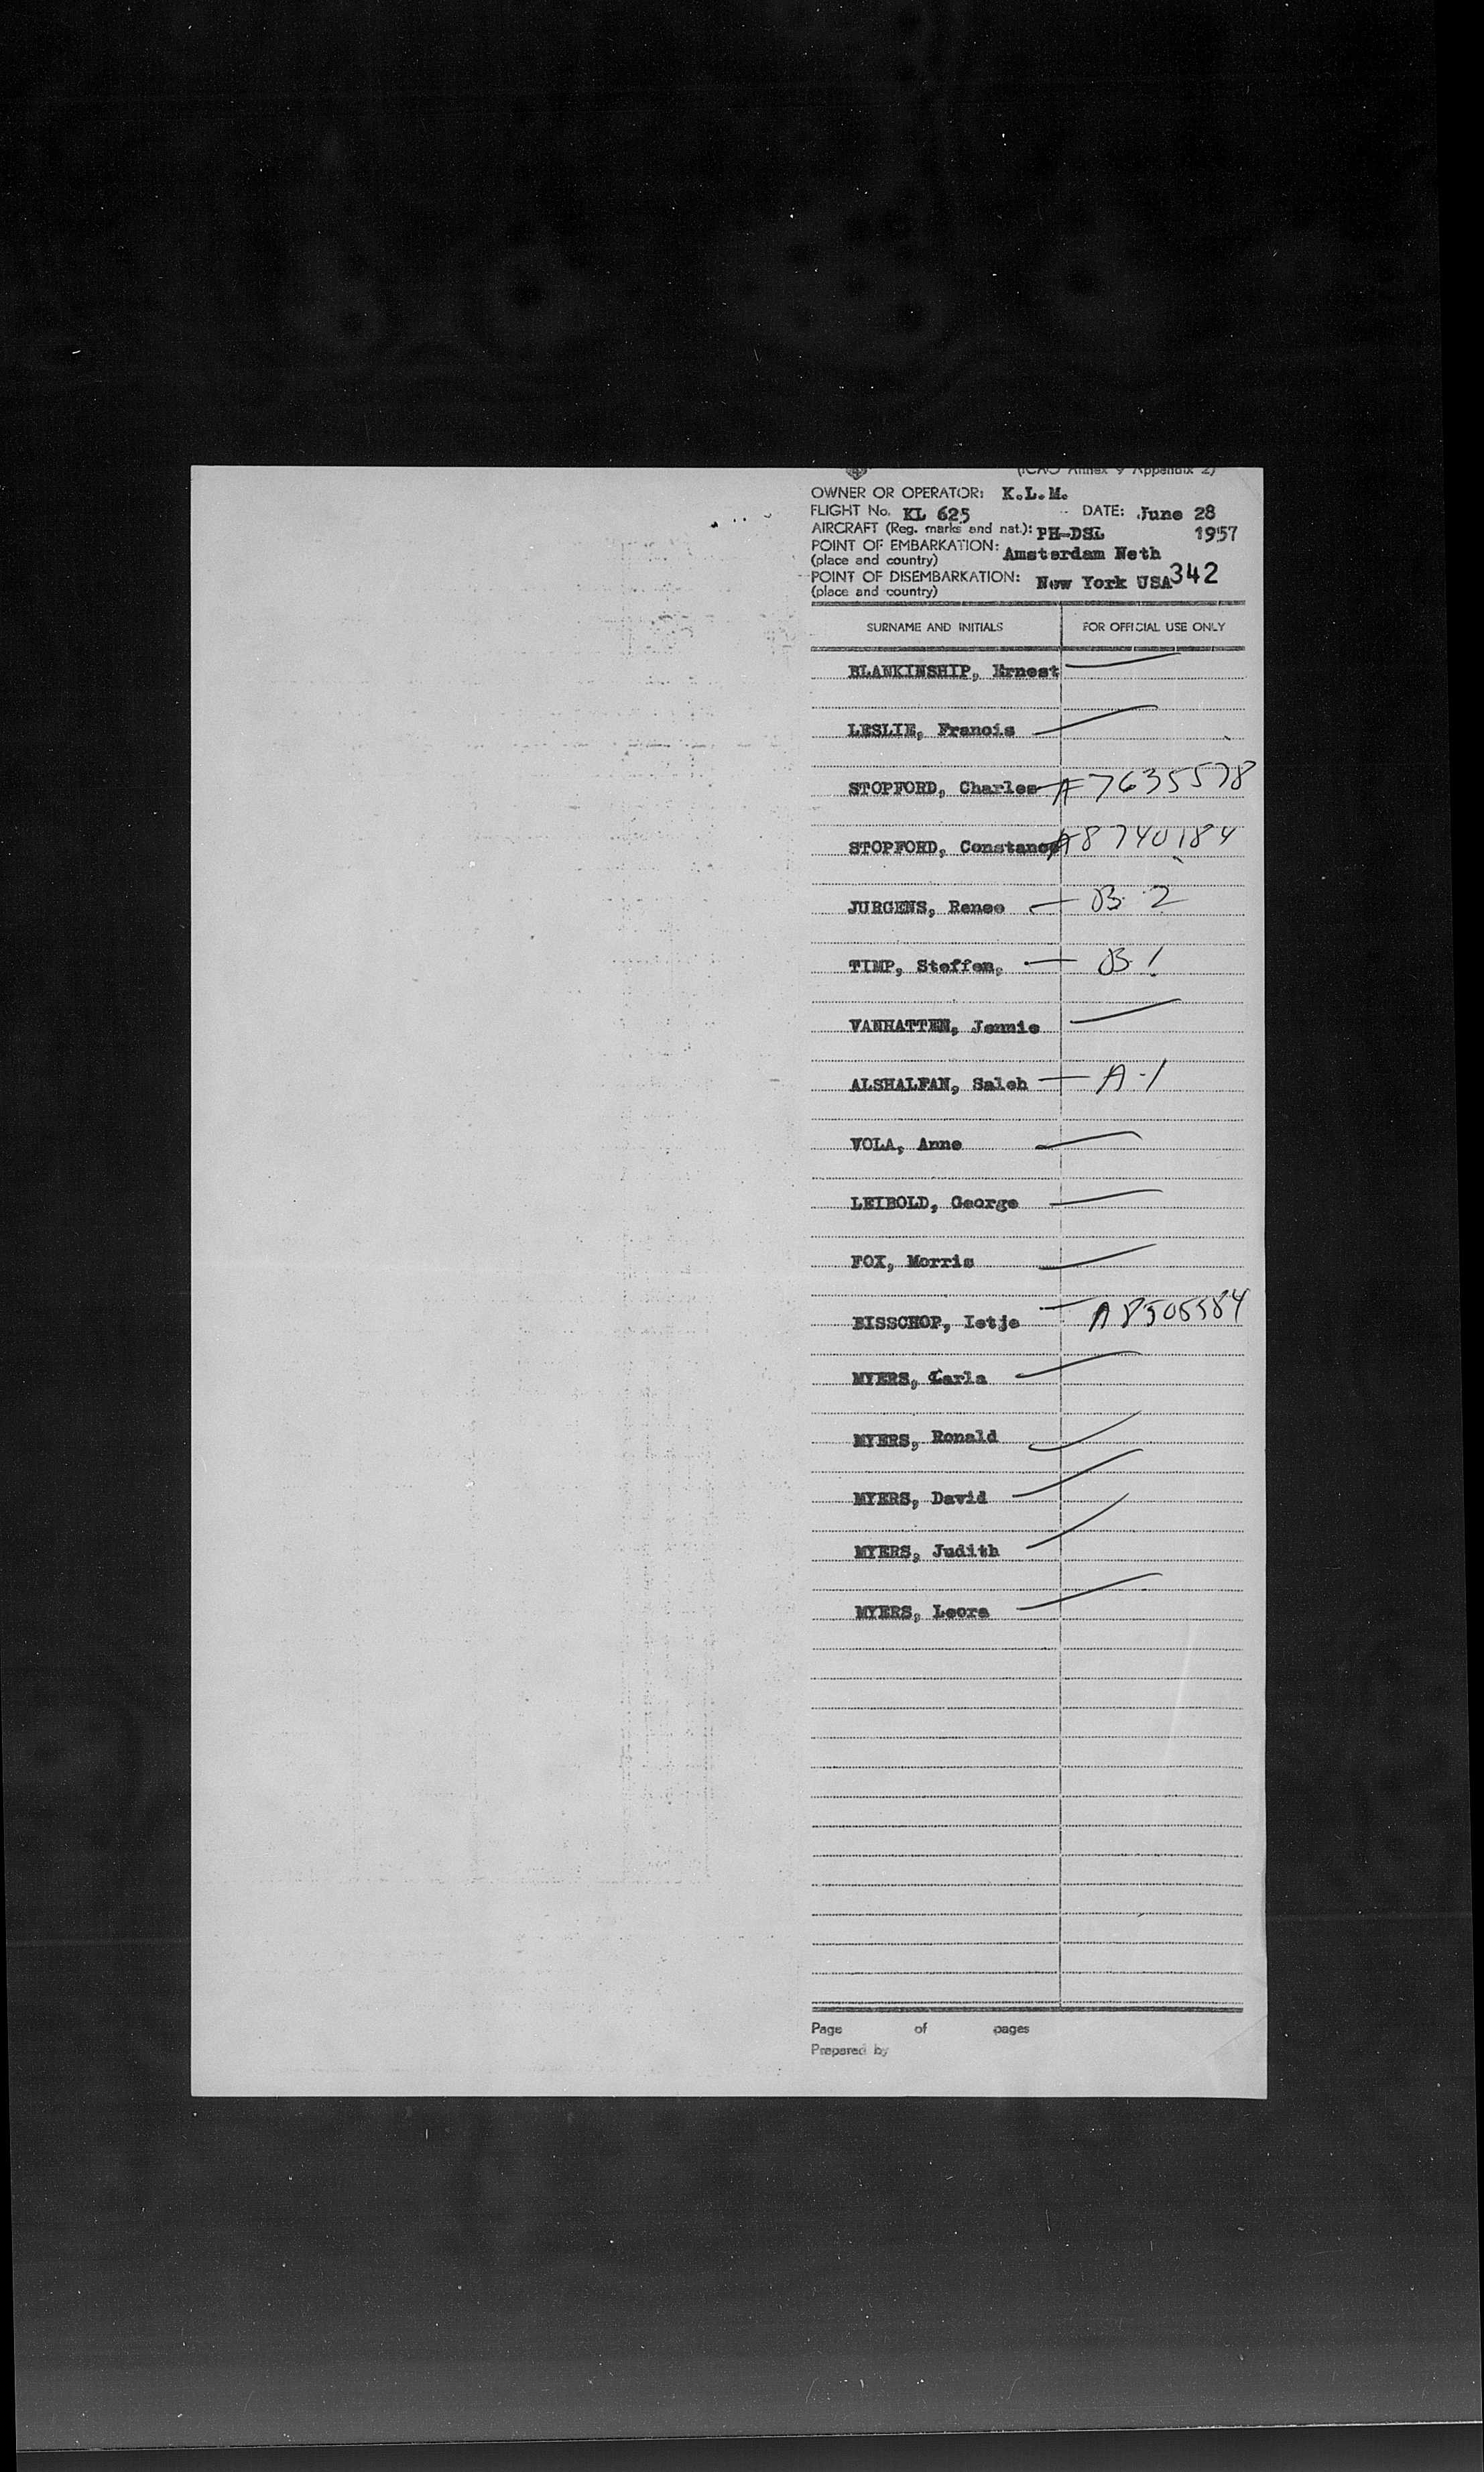 (ICAO Annex 9 Appendix 2)
OWNER OR OPERATOR: K.L.M.
FLIGHT No. KL 625 DATE: June 28
AIRCRAFT (Reg. marks and nat.): PH-DSL 1957
POINT OF EMBARKATION: Amsterdam Neth
(place and country)
POINT OF DISEMBARKATION: New York USA 342
(place and country)
SURNAME AND INITIALS FOR OFFICIAL USE ONLY
BLANKINSHIP, Ernest
LESLIE, Francis
STOPFORD, Charles A7635578
STOPFORD, Constance A8740184
JURGENS, Renee B-2
TIMP, Steffen, B-1
VANHATTEN, Jennie
ALSHALFAN, Saleh A-1
VOLA, Anne
LEIBOLD, George
FOX, Morris
BISSCHOP, Ietje A8505584
MYERS, Carla
MYERS, Ronald
MYERS, David
MYERS, Judith
MYERS, Leora
Page of pages
Prepared by